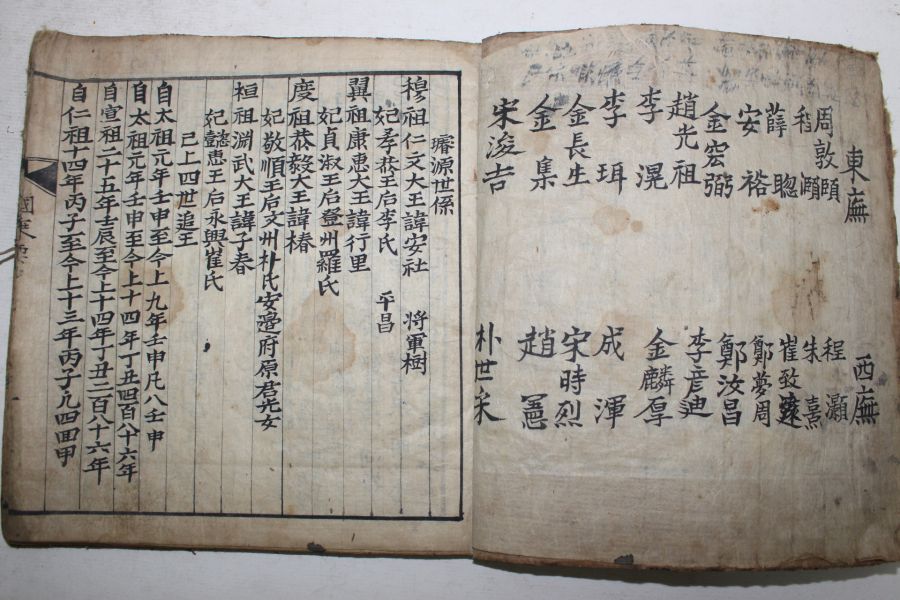 東廡
周敦頤
程頤
薛聦
安裕
金宏弼
趙光祖
李滉
李珥
金長生
金集
宋浚吉
西廡
程灝
朱熹
崔致遠
鄭夢周
鄭汝昌
李彦迪
金麟厚
成渾
宋時烈
趙憲
朴世采
璿源世係
穆祖仁文大王諱安社 將軍樹
妃孝恭王后李氏 平昌
翼祖康惠大王諱行里
妃貞淑王后登州羅氏
度祖恭毅大王諱椿
妃敬順王后文州朴氏安邉府原君光女
桓祖淵武大王諱子春
妃懿惠王后永興崔氏
已上四世追王
自太祖元年壬申至今上九年壬申凡八壬申
自太祖元年壬申至今上十四年丁丑四百八十六年
自宣祖二十五年壬辰至今上十四年丁丑二百八十六年
自仁祖十四年丙子至今上十三年丙子凡四囬甲